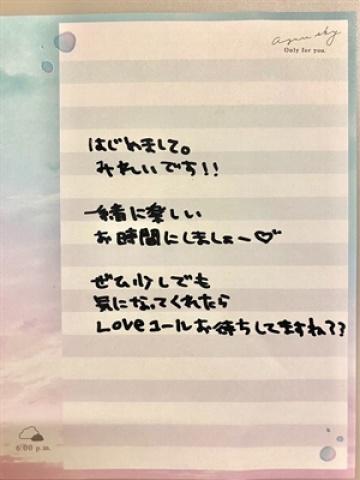 azure sky
Only for you.
はじめまして。
みれいです!!
一緒に楽しい
お時間にしましょー♡
ぜひ少しでも
気になってくれたら
Loveコールお待ちしてますね??
6:00 p.m.